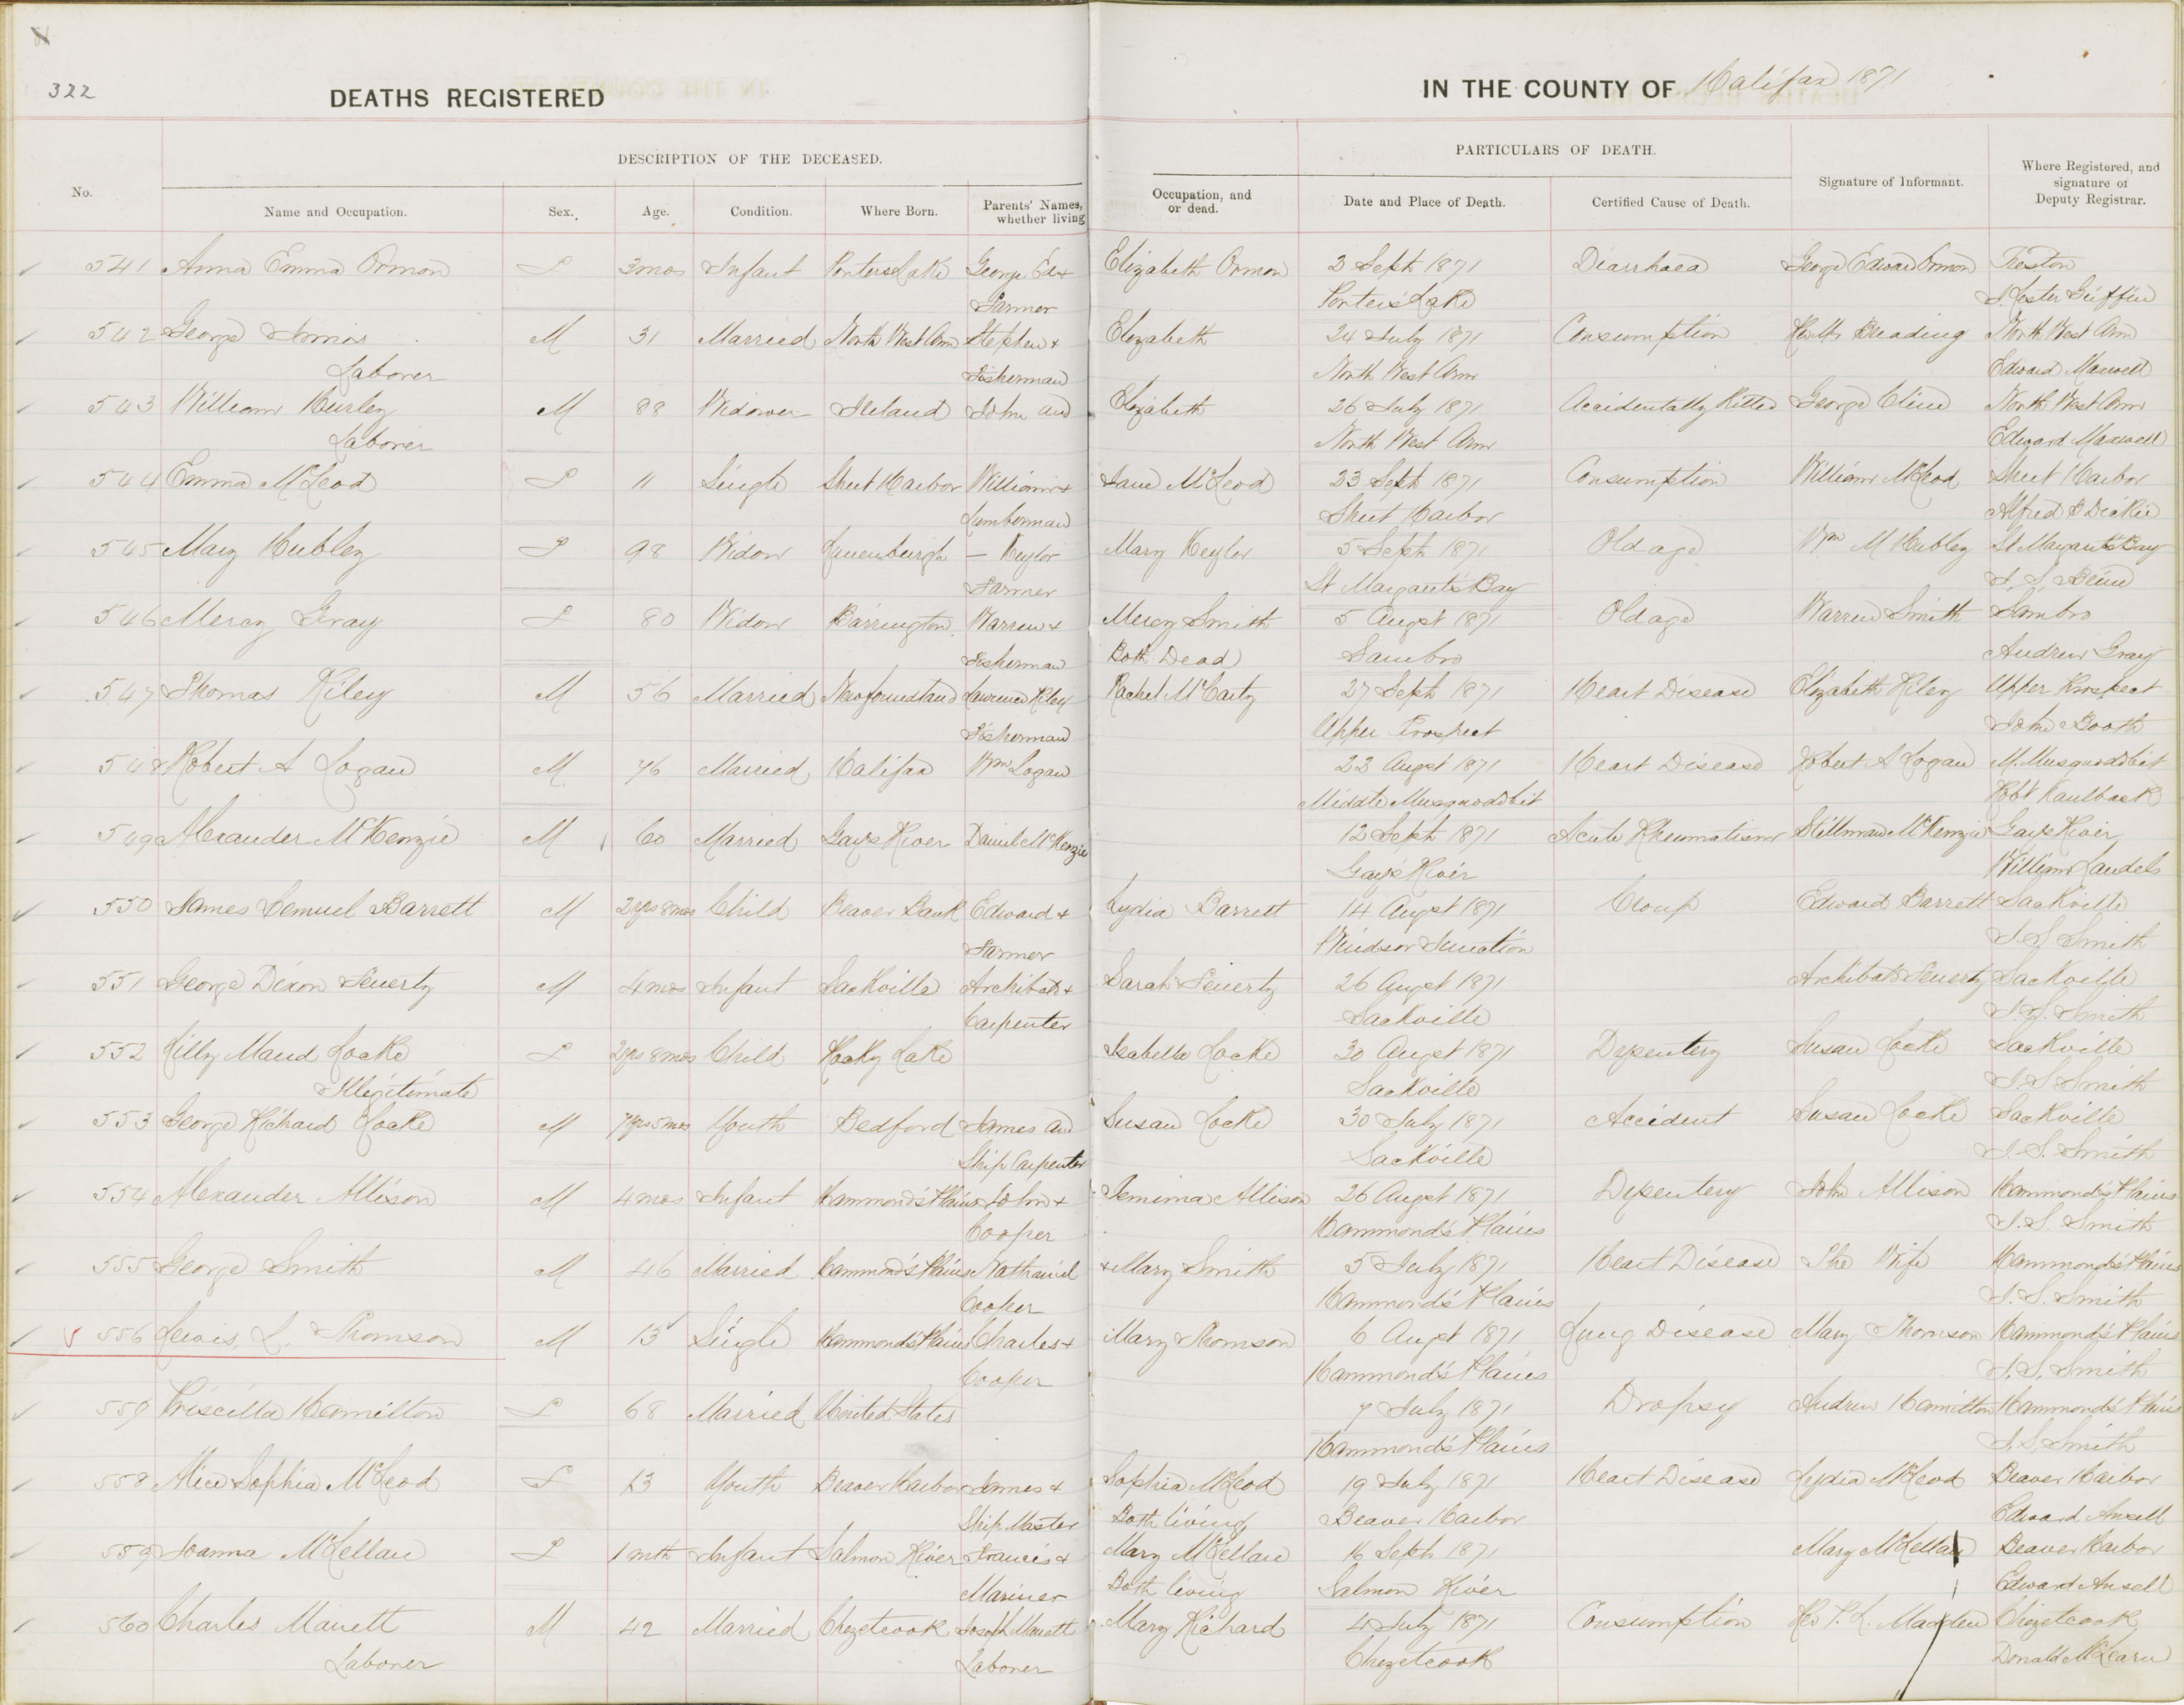 322
DEATHS REGISTERED
IN THE COUNTY OF Halifax 1871
DESCRIPTION OF THE DECEASED.
PARTICULARS OF DEATH.
No.
Name and Occupation.
Sex.
Age.
Condition.
Where Born.
Parents' Names, whether living
Occupation, and or dead.
Date and Place of Death.
Certified Cause of Death.
Signature of Informant.
Where Registered, and signature of Deputy Registrar.
541 Anna Emma Ormon F 3mos Infant Porters Lake George Ed & Elizabeth Ormon 3 Sept 1871 Diarrhaea George Edward Ormon Preston
Farmer Porter's Lake Griffin
542 George M 31 Married North West Arm Stephen & Elizabeth 24 July 1871 Consumption North West Arm
Laborer Fisherman North West Arm Edward Maxwell
543 William Hurley M 88 Widower Ireland John and Elizabeth 26 July 1871 Accidentally Killed George Cline North West Arm
Laborer North West Arm Edward Maxwell
544 Emma McLeod F 11 Single Sheet Harbor William & Jane McLeod 23 Sept 1871 Consumption William McLeod Sheet Harbor
Lumberman Sheet Harbor Alfred Dickie
545 Mary Hubley F 98 Widow Lunenburgh — Keylor Mary Keylor 5 Sept 1871 Old age Wm M Hubley St Margarets Bay
Farmer St Margarets Bay
546 Mercy Gray F 80 Widow Barrington Warren & Mercy Smith 5 Augst 1871 Old age Warren Smith Sambro
Fisherman Both Dead Sambro Andrew Gray
547 Thomas Kiley M 56 Married Newfoundland Lawrence Kiley Rachel McCarty 27 Sept 1871 Heart Disease Elizabeth Kiley Upper Prospect
Fisherman Upper Prospect John Booth
548 Robert A Logan M 76 Married Halifax Wm Logan 22 Augst 1871 Heart Disease Robert A Logan M. Musquodobit
Middle Musquodobit Robt Kaulback
549 Alexander McKenzie M 60 Married Gays River Daniel McKenzie 12 Sept 1871 Acute Rheumatism Stillman McKenzie Gays River
Gay's River William Landels
550 James Lemuel Barrett M 2yrs 8mos Child Beaver Bank Edward & Lydia Barrett 14 Augst 1871 Croup Edward Barrett Sackville
Farmer Windsor Junction J. S Smith
551 George Dixon Fenerty M 4mos Infant Sackville Archibald & Sarah Fenerty 26 Augst 1871 Archibald Fenerty Sackville
Carpenter Sackville J. S. Smith
552 Lilly Maud Locke F 2yrs 8mos Child Rocky Lake Isabella Locke 30 Augst 1871 Dysentery Susan Locke Sackville
Illegitimate Sackville J. S Smith
553 George Richard Locke M 7yrs 5mos Youth Bedford James and Susan Locke 30 July 1871 Accident Susan Locke Sackville
Ship Carpenter Sackville J. S. Smith
554 Alexander Allison M 4mos Infant Hammond's Plains John & Jemima Allison 26 Augst 1871 Dysentery John Allison Hammond's Plains
Cooper Hammond's Plains J. S. Smith
555 George Smith M 46 Married Hammond's Plains Nathaniel & Mary Smith 5 July 1871 Heart Disease The Wife Hammond's Plains
Cooper Hammond's Plains J. S. Smith
556 Lewis L. Thomson M 13 Single Hammond's Plains Charles & Mary Thomson 6 Augst 1871 Lung Disease Mary Thomson Hammond's Plains
Cooper Hammond's Plains J. S. Smith
557 Priscilla Hamilton F 68 Married United States 7 July 1871 Dropsy Andrew Hamilton Hammond's Plains
Hammond's Plains J. S. Smith
558 Alice Sophia McLeod F 13 Youth Beaver Harbor James & Sophia McLeod 19 July 1871 Heart Disease Lydia McLeod Beaver Harbor
Ship Master Both living Beaver Harbor Edward Ansell
559 Joanna McLellan F 1 mth Infant Salmon River Francis & Mary McLellan 16 Sept 1871 Mary McLellan Beaver Harbor
Mariner Both living Salmon River Edward Ansell
560 Charles Manett M 42 Married Chezetcook Joseph Manett Mary Richard 4 July 1871 Consumption Madden Chezetcook
Laborer Laborer Chezetcook Donald McLearn